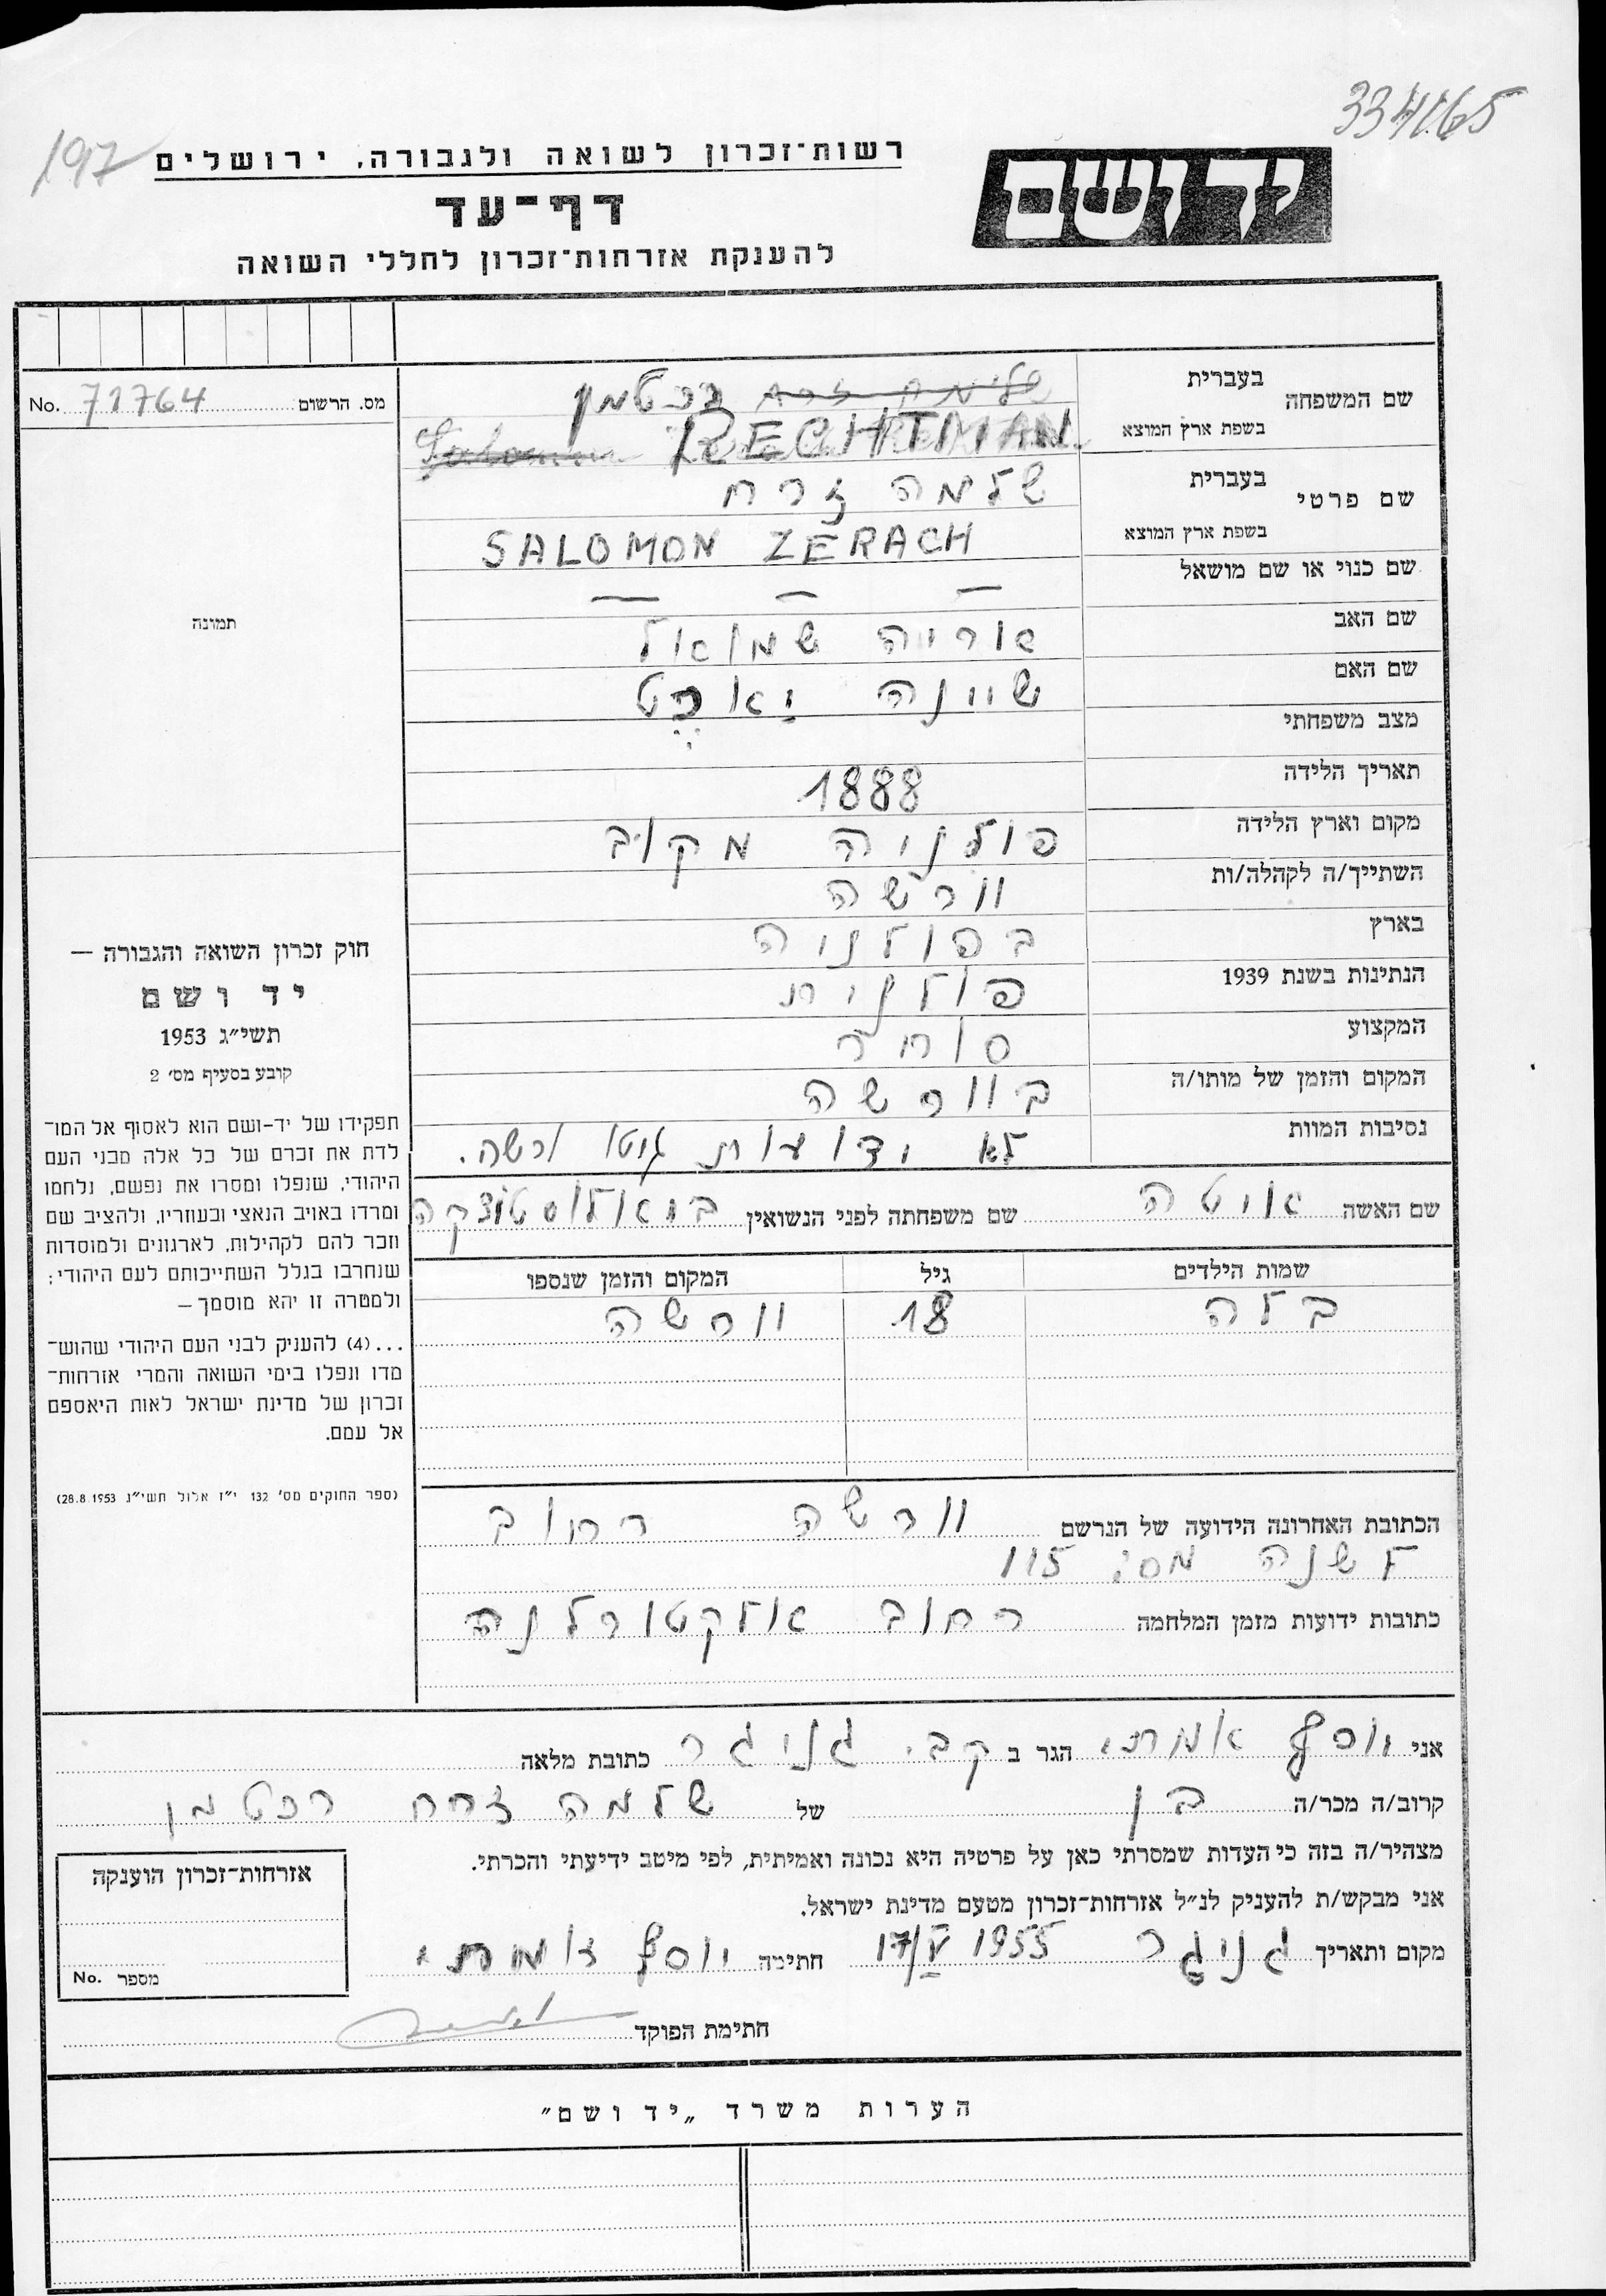 334165
197
רשות־זכרון לשואה ולגבורה, ירושלים
יד ושם
דף־עד
להענקת אזרחות־זכרון לחללי השואה
מס. הרשום 71764 No.
תמונה
שם המשפחה בעברית רכטמן
בשפת ארץ המוצא RECHTMAN
שם פרטי בעברית שלמה זרח
בשפת ארץ המוצא SALOMON ZERACH
שם כנוי או שם מושאל — — —
שם האב אריה שמואל
שם האם שיינה
מצב משפחתי
תאריך הלידה 1888
מקום וארץ הלידה פולניה מקוב
השתייך/ה לקהלה/ות וורשה
בארץ בפולניה
הנתינות בשנת 1939 פולנית
המקצוע סוחר
המקום והזמן של מותו/ה בוורשה
נסיבות המוות לא ידועות גיטו ורשה.
שם האשה אויטה שם משפחתה לפני הנשואין
שמות הילדים גיל המקום והזמן שנספו
בלה 18 וורשה
הכתובת האחרונה הידועה של הנרשם וורשה רחוב
לשנה מס: 115
כתובות ידועות מזמן המלחמה רחוב אלקטורלנה
חוק זכרון השואה והגבורה —
יד ושם
תשי״ג 1953
קובע בסעיף מס׳ 2
תפקידו של יד-ושם הוא לאסוף אל המו־
לדת את זכרם של כל אלה מבני העם
היהודי, שנפלו ומסרו את נפשם, נלחמו
ומרדו באויב הנאצי ובעוזריו, ולהציב שם
וזכר להם לקהילות, לארגונים ולמוסדות
שנחרבו בגלל השתייכותם לעם היהודי;
ולמטרה זו יהא מוסמך —
...(4) להעניק לבני העם היהודי שהוש־
מדו ונפלו בימי השואה והמרי אזרחות־
זכרון של מדינת ישראל לאות היאספם
אל עמם.
(ספר החוקים מס׳ 132 י״ז אלול תשי״ג 28.8.1953)
אני יוסף אמתי הגר ב קבי גניגר כתובת מלאה
קרוב/ה מכר/ה בן של שלמה זרח רכטמן
מצהיר/ה בזה כי העדות שמסרתי כאן על פרטיה היא נכונה ואמיתית, לפי מיטב ידיעתי והכרתי.
אני מבקש/ת להעניק לנ״ל אזרחות־זכרון מטעם מדינת ישראל.
מקום ותאריך גניגר 17/V 1955 חתימה יוסף אמתי
אזרחות־זכרון הוענקה
מספר No.
חתימת הפוקד
הערות משרד „יד ושם״